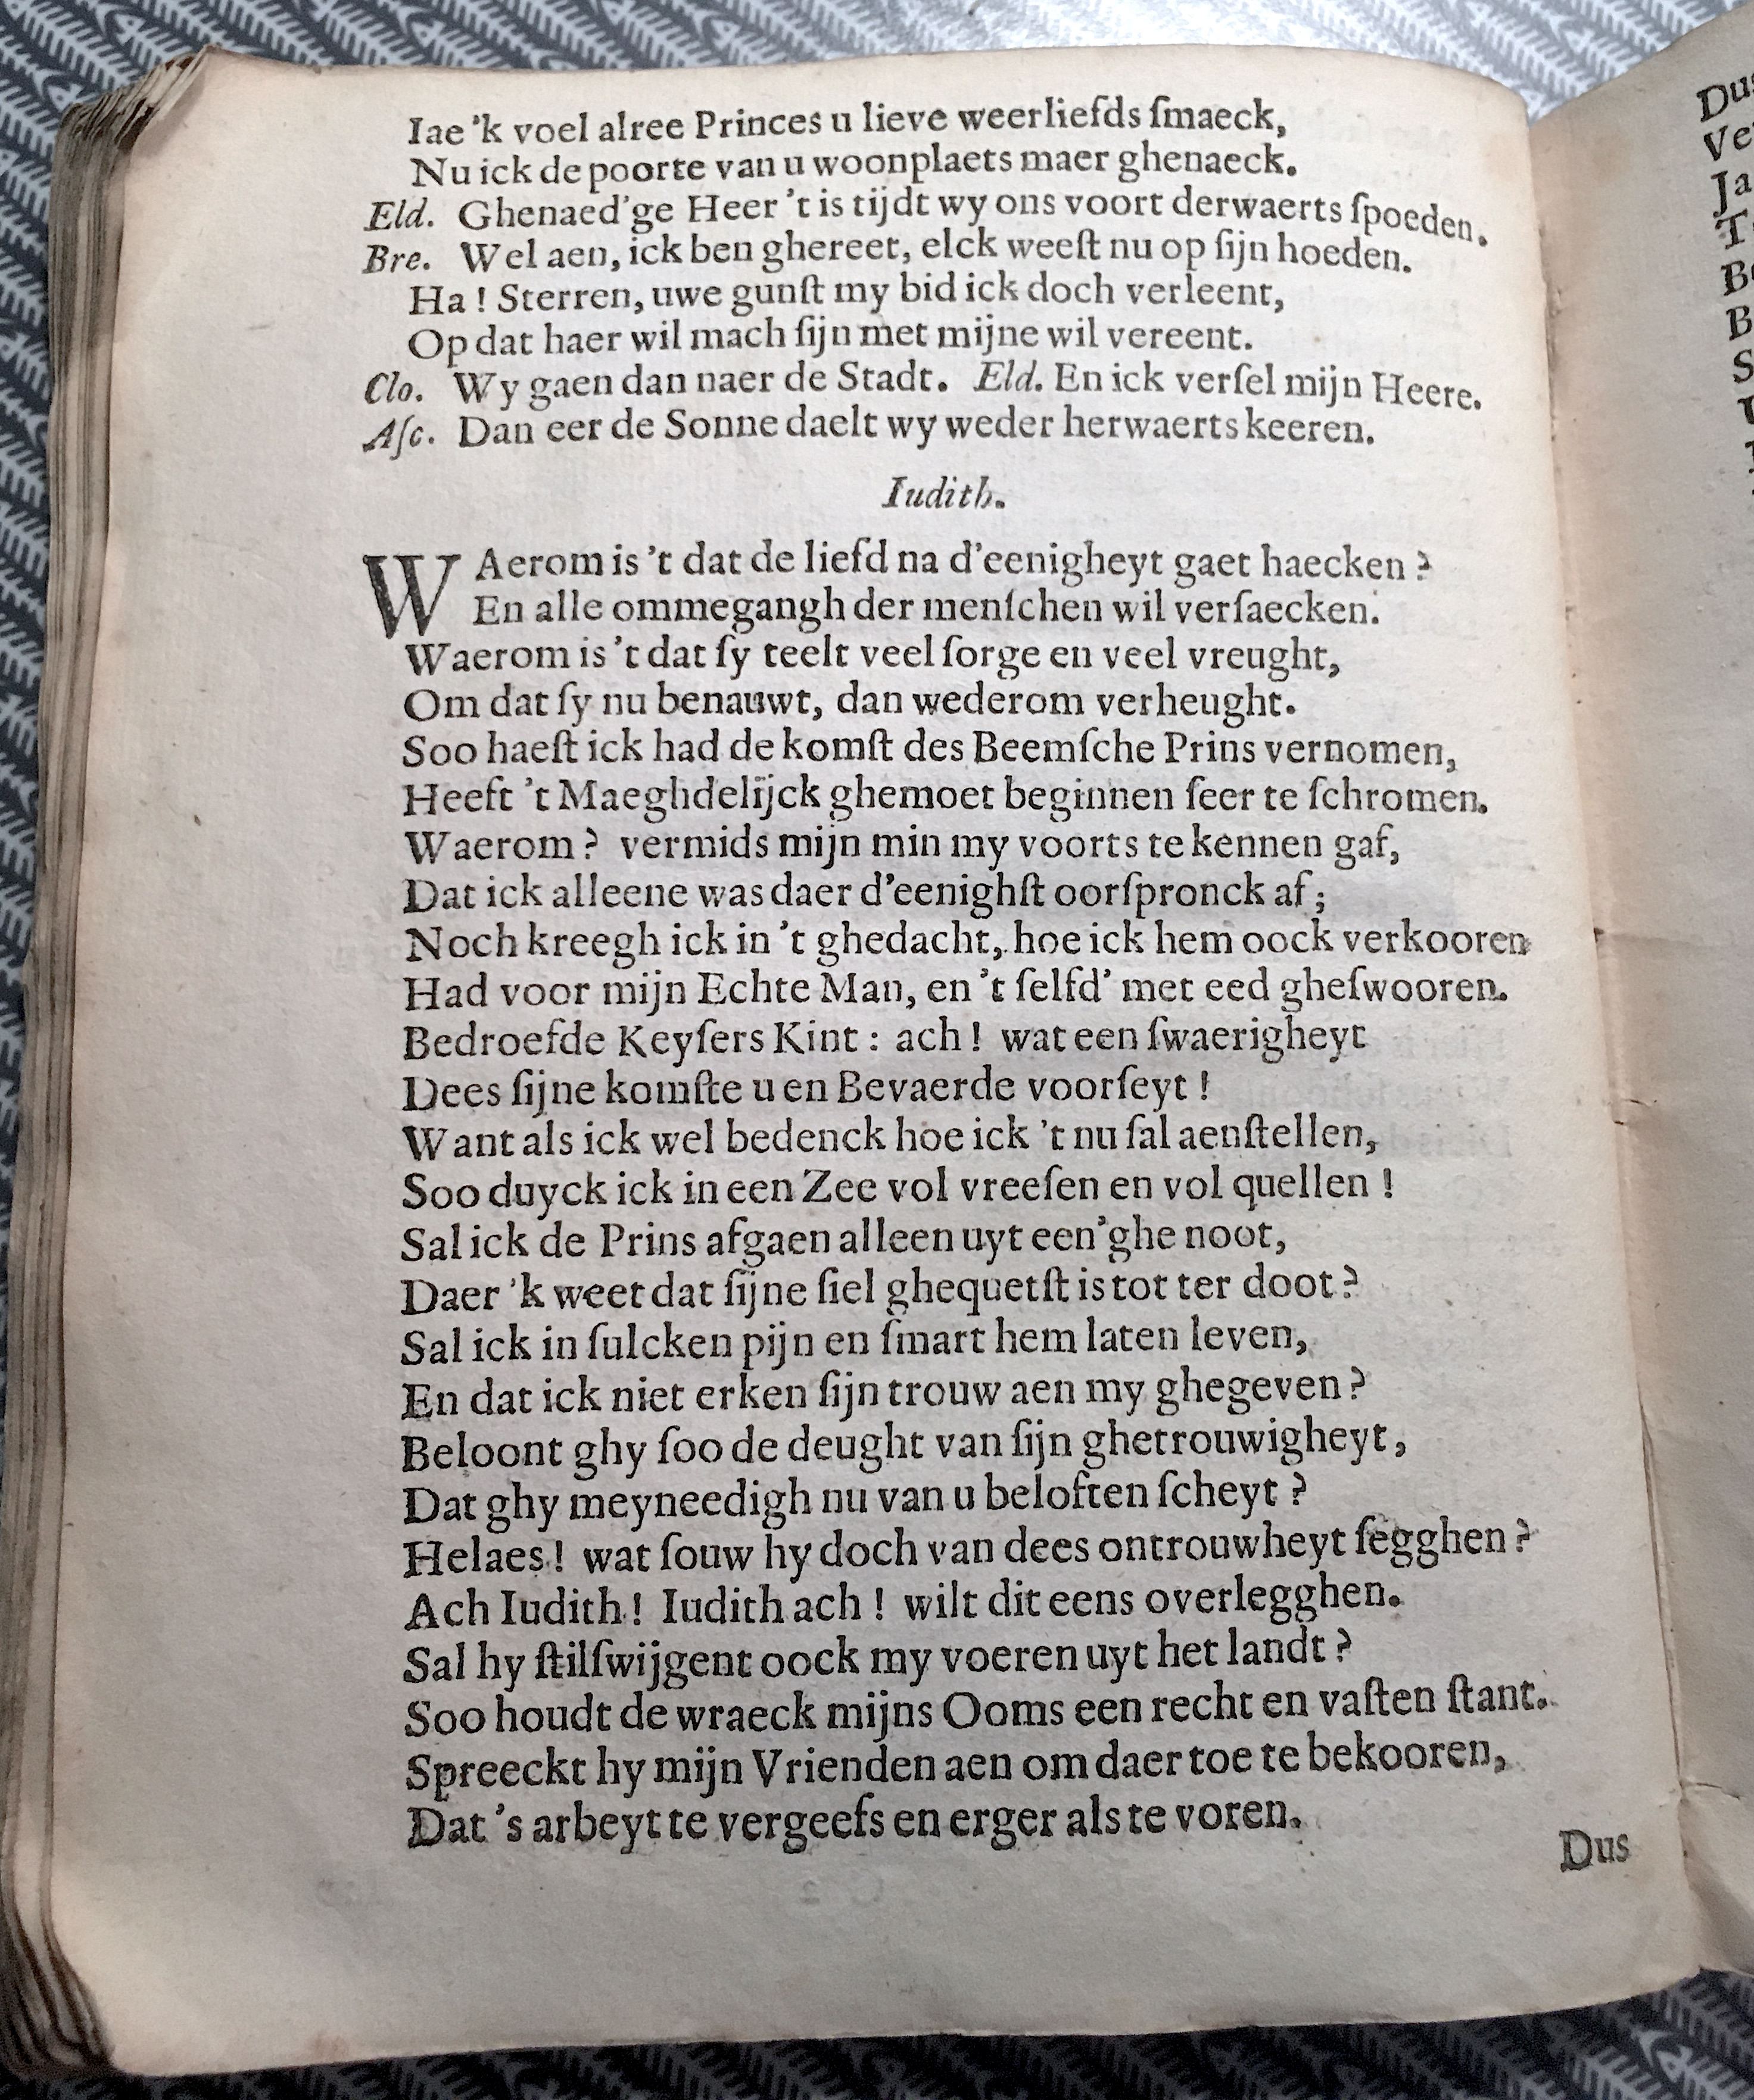 Iae 'k voel alree Princes u lieve weerliefds ſmaeck,
Nu ick de poorte van u woonplaets maer ghenaeck.
Eld. Ghenaed'ge Heer 't is tijdt wy ons voort derwaerts ſpoeden.
Bre. Wel aen, ick ben ghereet, elck weeſt nu op ſijn hoeden.
Ha! Sterren, uwe gunſt my bid ick doch verleent,
Op dat haer wil mach ſijn met mijne wil vereent.
Clo. Wy gaen dan naer de Stadt. Eld. En ick verſel mijn Heere.
Aſc. Dan eer de Sonne daelt wy weder herwaerts keeren.
Iudith.
WAerom is 't dat de liefd na d'eenigheyt gaet haecken?
En alle ommegangh der menſchen wil verſaecken.
Waerom is 't dat ſy teelt veel ſorge en veel vreught,
Om dat ſy nu benauwt, dan wederom verheught.
Soo haeſt ick had de komſt des Beemſche Prins vernomen,
Heeft 't Maeghdelijck ghemoet beginnen ſeer te ſchromen.
Waerom? vermids mijn min my voorts te kennen gaf,
Dat ick alleene was daer d'eenighſt oorſpronck af;
Noch kreegh ick in 't ghedacht, hoe ick hem oock verkooren
Had voor mijn Echte Man, en 't ſelfd' met eed gheſwooren.
Bedroefde Keyſers Kint: ach! wat een ſwaerigheyt
Dees ſijne komſte u en Bevaerde voorſeyt!
Want als ick wel bedenck hoe ick 't nu ſal aenſtellen,
Soo duyck ick in een Zee vol vreeſen en vol quellen!
Sal ick de Prins afgaen alleen uyt een'ghe noot,
Daer 'k weet dat ſijne ſiel ghequetſt is tot ter doot?
Sal ick in ſulcken pijn en ſmart hem laten leven,
En dat ick niet erken ſijn trouw aen my ghegeven?
Beloont ghy ſoo de deught van ſijn ghetrouwigheyt,
Dat ghy meyneedigh nu van u beloften ſcheyt?
Helaes! wat ſouw hy doch van dees ontrouwheyt ſegghen?
Ach Iudith! Iudith ach! wilt dit eens overlegghen.
Sal hy ſtilſwijgent oock my voeren uyt het landt?
Soo houdt de wraeck mijns Ooms een recht en vaſten ſtant.
Spreeckt hy mijn Vrienden aen om daer toe te bekooren,
Dat 's arbeyt te vergeefs en erger als te voren.
Dus
Dus
Ja